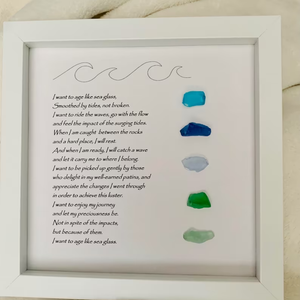 I want to age like sea glass.
Smoothed by tides, not broken.
I want to ride the waves, go with the flow
and feel the impact of the surging tides.
When I am caught between the rocks
and a hard place, I will rest.
And when I am ready, I will catch a wave
and let it carry me to where I belong.
I want to be picked up gently by those
who delight in my well-earned patina, and
appreciate the changes I went through
in order to achieve this luster.
I want to enjoy my journey
and let my preciousness be.
Not in spite of the impacts,
but because of them.
I want to age like sea glass.